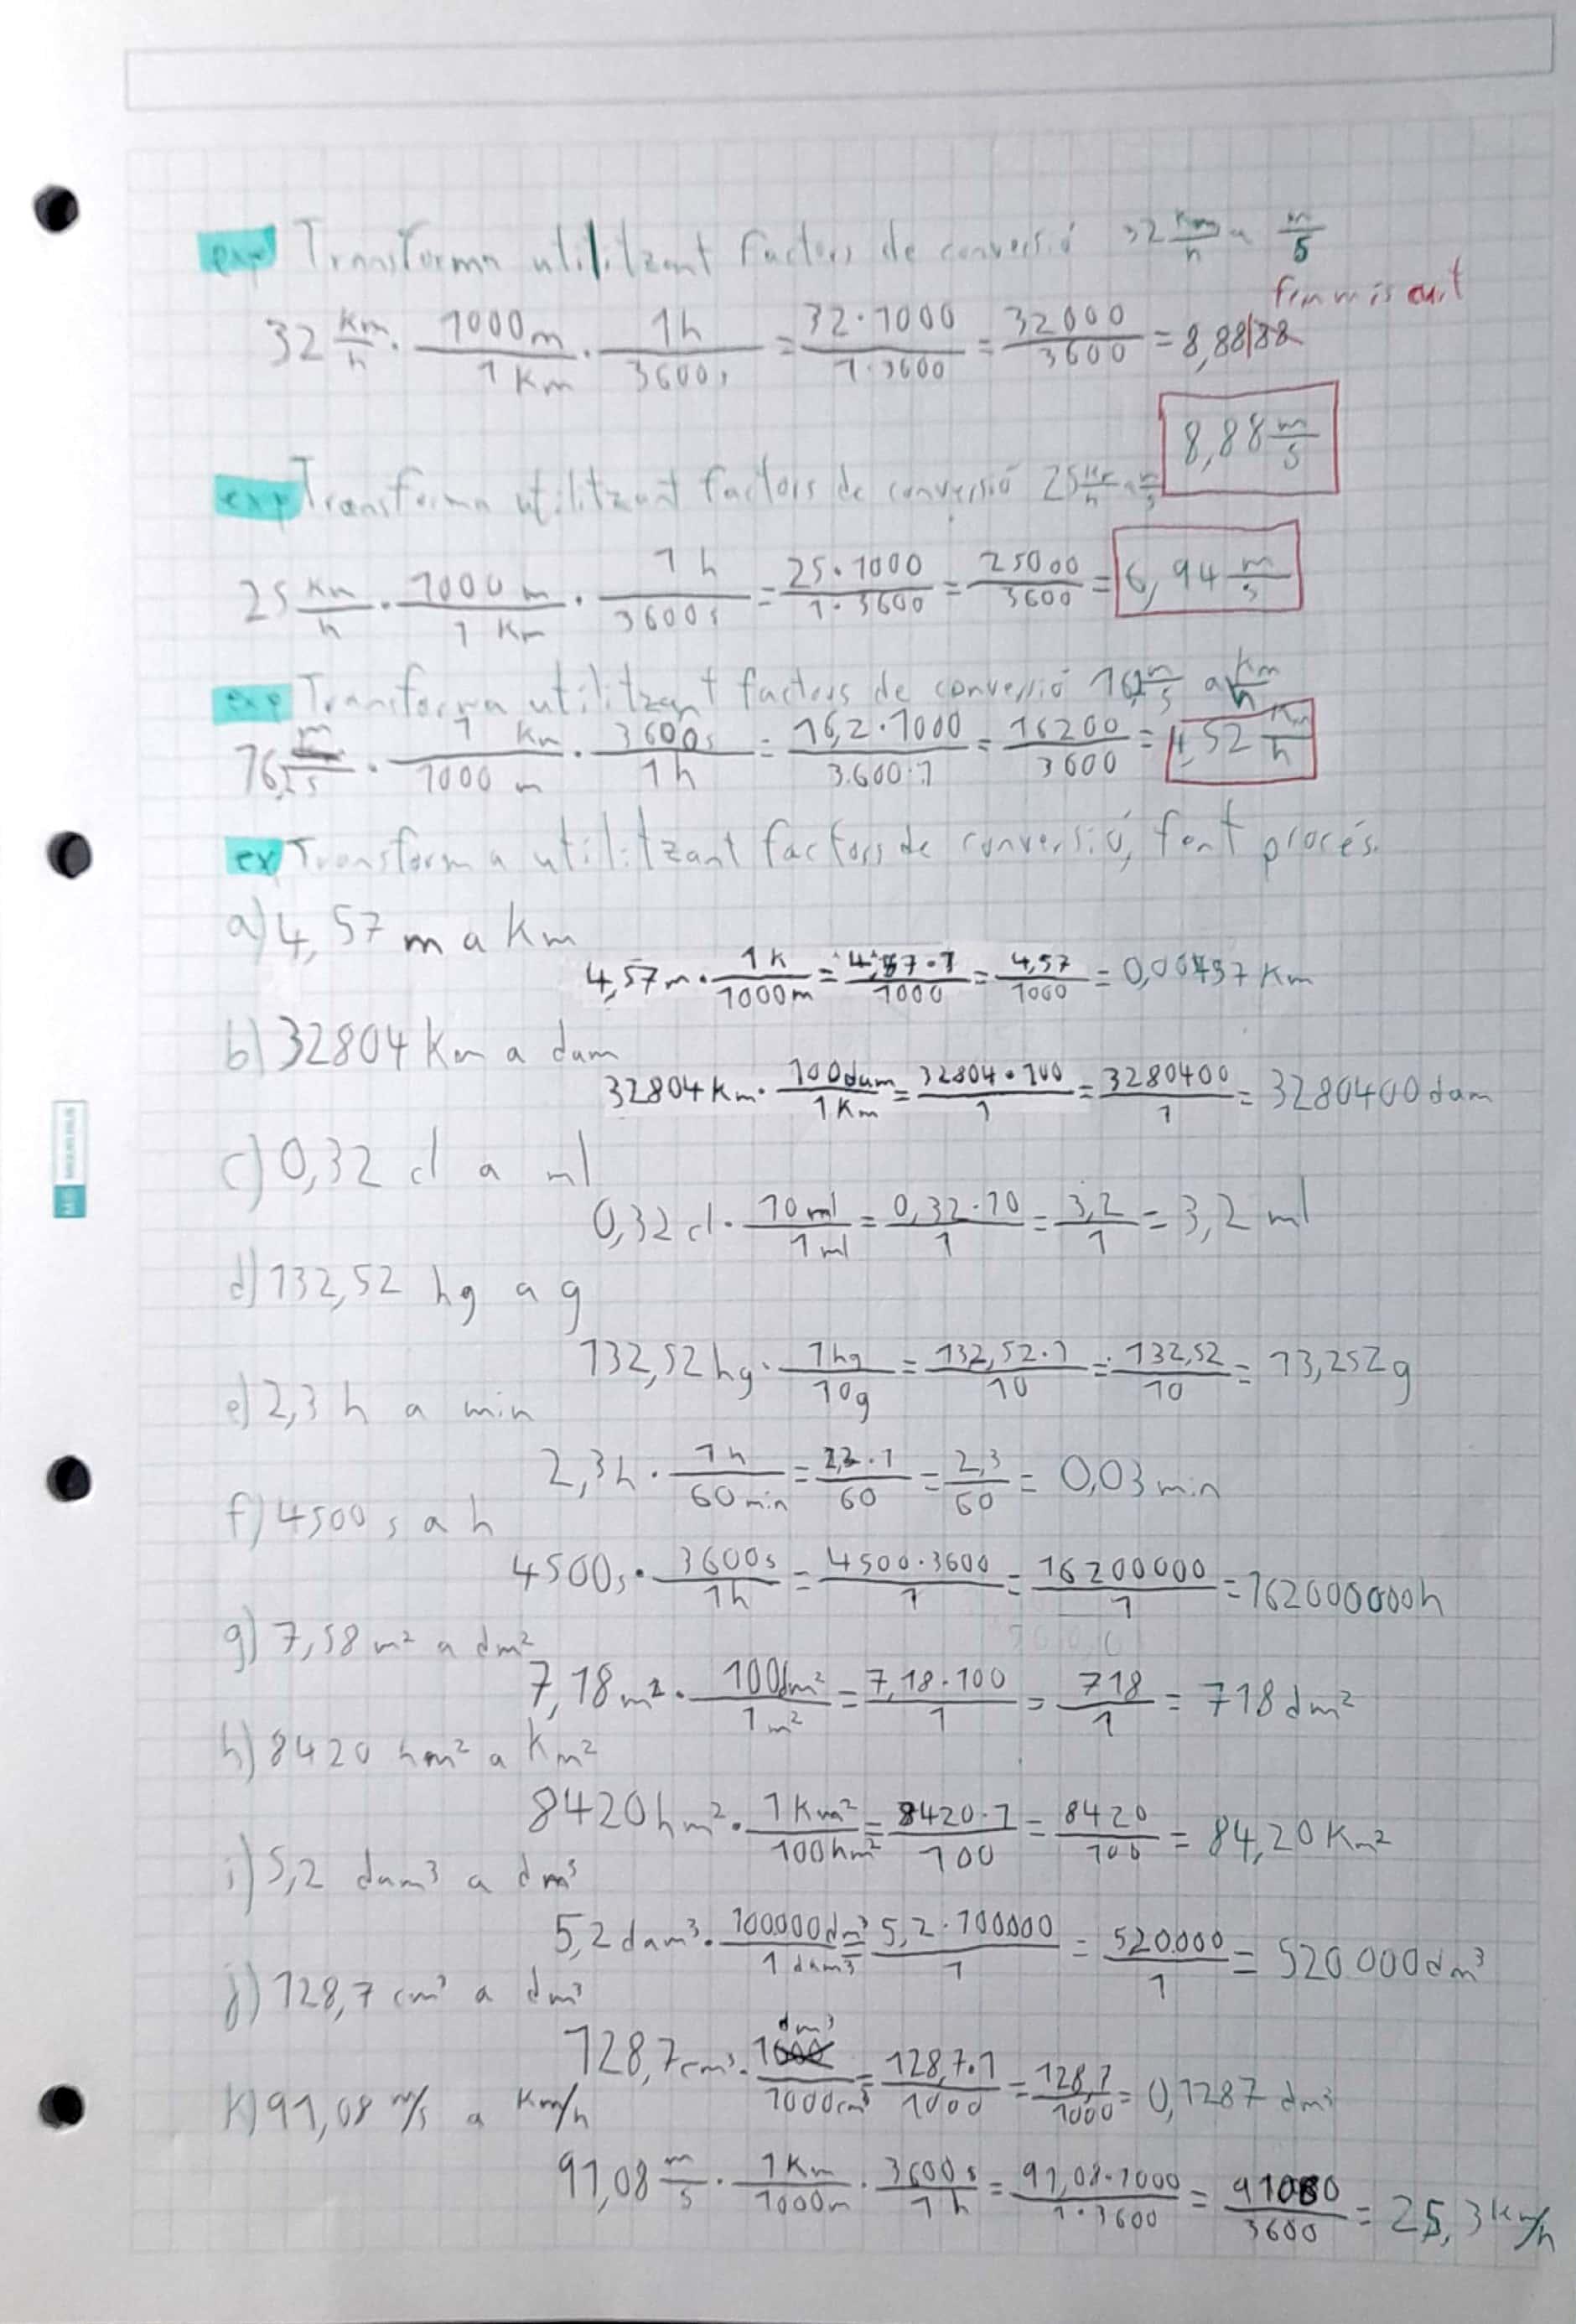 exp Transforma utilitzant factors de conversió 32 km/h a m/s
fem mis cut
32 km/h · 1000m/1Km · 1h/3600s = 32·1000/1·3600 = 32000/3600 = 8,8888
8,88 m/s
exp Transforma utilitzant factors de conversió 25 km/h a m/s
25 Km/h · 1000m/1Km · 1h/3600s = 25·1000/1·3600 = 25000/3600 = 6,94 m/s
exp Transforma utilitzant factors de conversió 16,2 m/s a Km/h
16,2 m/s · 1 Km/1000 m · 3600s/1h = 16,2·1000/3.600·1 = 16200/3600 = 4,52 Km/h
ex Transforma utilitzant factors de conversió, fent procés.
a) 4,57 m a Km
4,57m · 1K/1000m = 4,57·1/1000 = 4,57/1000 = 0,00457 Km
b) 32804 Km a dam
32804 Km · 100dam/1Km = 32804·100/1 = 3280400/1 = 3280400 dam
c) 0,32 cl a ml
0,32 cl · 10ml/1ml = 0,32·10/1 = 3,2/1 = 3,2 ml
d) 132,52 hg a g
132,52 hg · 1hg/10g = 132,52·1/10 = 132,52/10 = 13,252 g
e) 2,3 h a min
2,3h · 1h/60min = 2,3·1/60 = 2,3/60 = 0,03 min
f) 4500 s a h
4500s · 3600s/1h = 4500·3600/1 = 16200000/1 = 162000000h
g) 7,18 m² a dm²
7,18 m² · 100dm²/1m² = 7,18·100/1 = 718/1 = 718 dm²
h) 8420 hm² a Km²
8420 hm² · 1Km²/100hm² = 8420·1/100 = 8420/100 = 84,20 Km²
i) 5,2 dam³ a dm³
5,2 dam³ · 100000dm³/1dam³ = 5,2·100000/1 = 520.000/1 = 520.000 dm³
j) 128,7 cm³ a dm³
128,7 cm³ · 1 dm³/1000cm³ = 128,7·1/1000 = 128,7/1000 = 0,1287 dm³
k) 91,08 m/s a Km/h
91,08 m/s · 1Km/1000m · 3600s/1h = 91,08·1000/1·3600 = 91080/3600 = 25,3 km/h